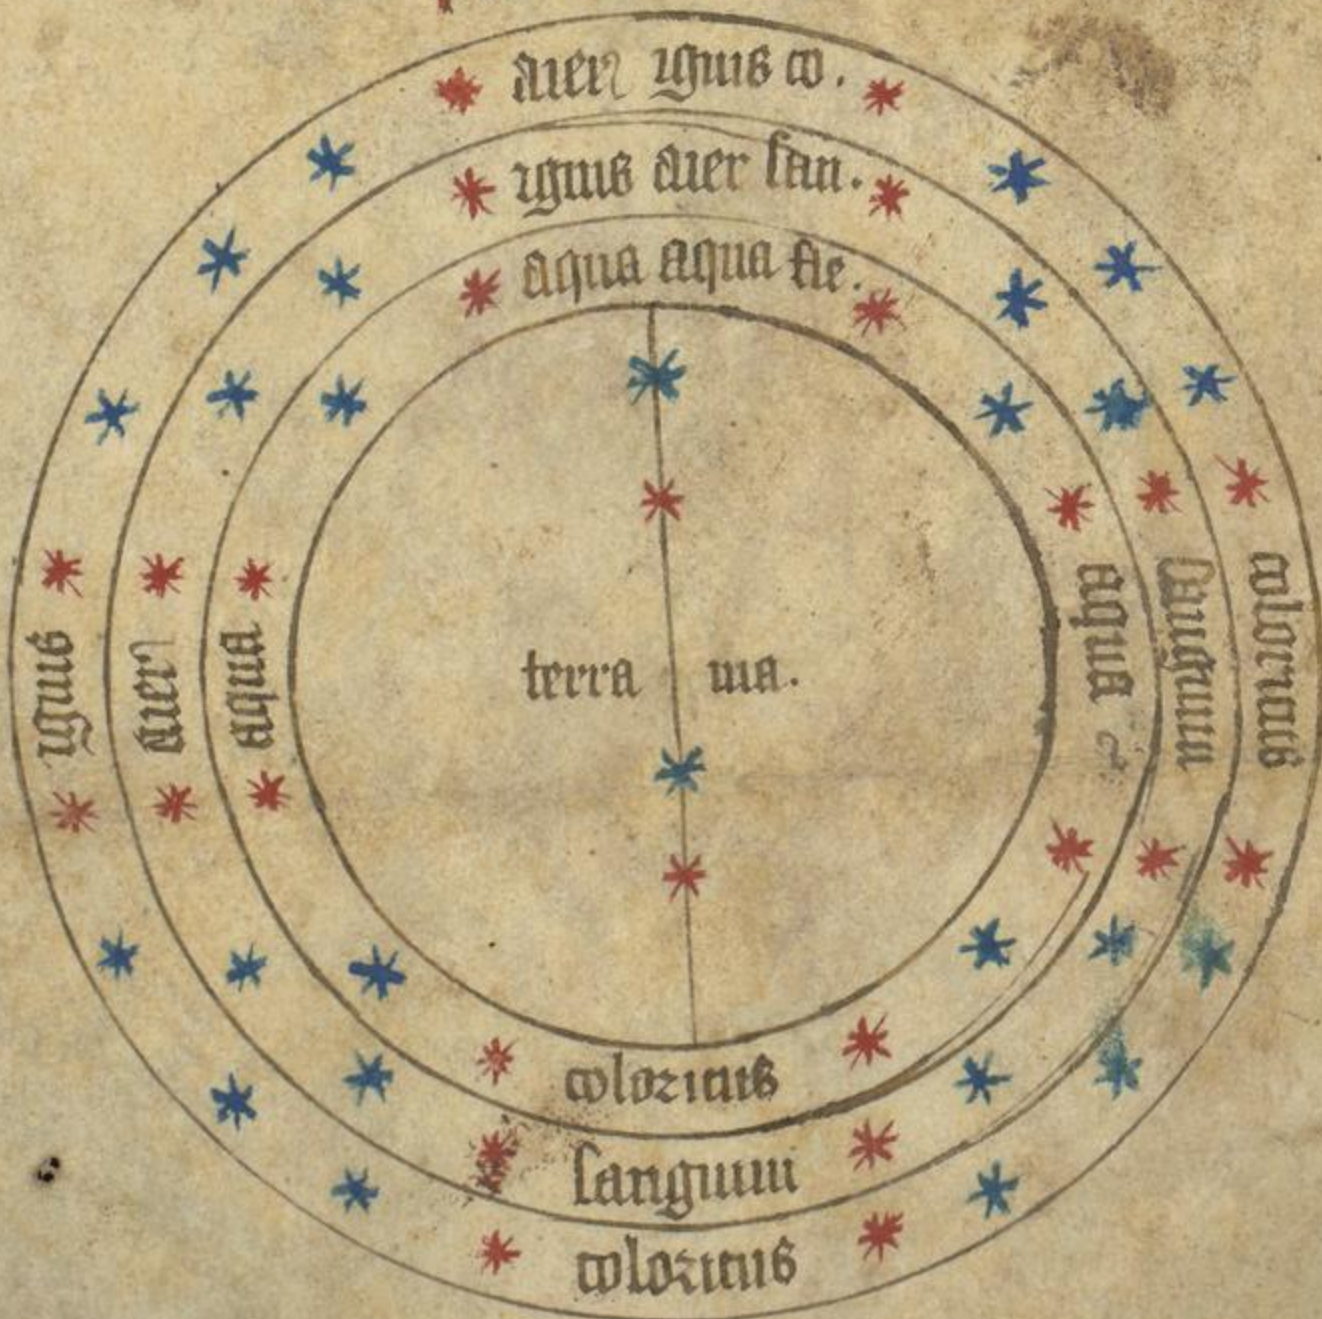 aier ignis co.
ignis aier san.
aqua aqua fle.
ignis
aier
aqua
terra ma.
aqua
sanguini
coloricus
coloricus
sanguini
coloricus